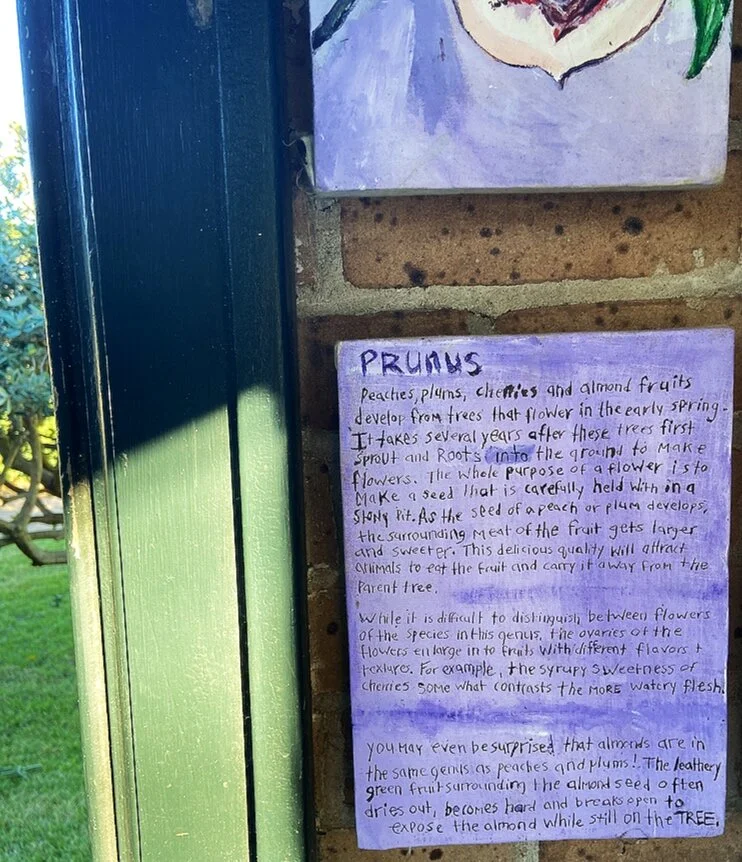 PRUNUS
Peaches, plums, cherries and almond fruits
develop from trees that flower in the early spring.
It takes several years after these trees first
sprout and Roots into the ground to make
flowers. The whole purpose of a flower is to
Make a seed that is carefully held with in a
Stony Pit. As the seed of a peach or plum develops,
the surrounding meat of the fruit gets larger
and sweeter. This delicious quality will attract
animals to eat the fruit and carry it away from the
Parent tree.
While it is difficult to distinguish between flowers
of the species in this genus, the ovaries of the
flowers enlarge in to fruits with different flavors +
textures. For example, the syrupy sweetness of
cherries some what contrasts the MORE watery flesh.
you May even be surprised that almonds are in
the same genus as peaches and plums! The leathery
green fruit surrounding the almond seed often
dries out, becomes hard and breaks open to
expose the almond while still on the TREE.